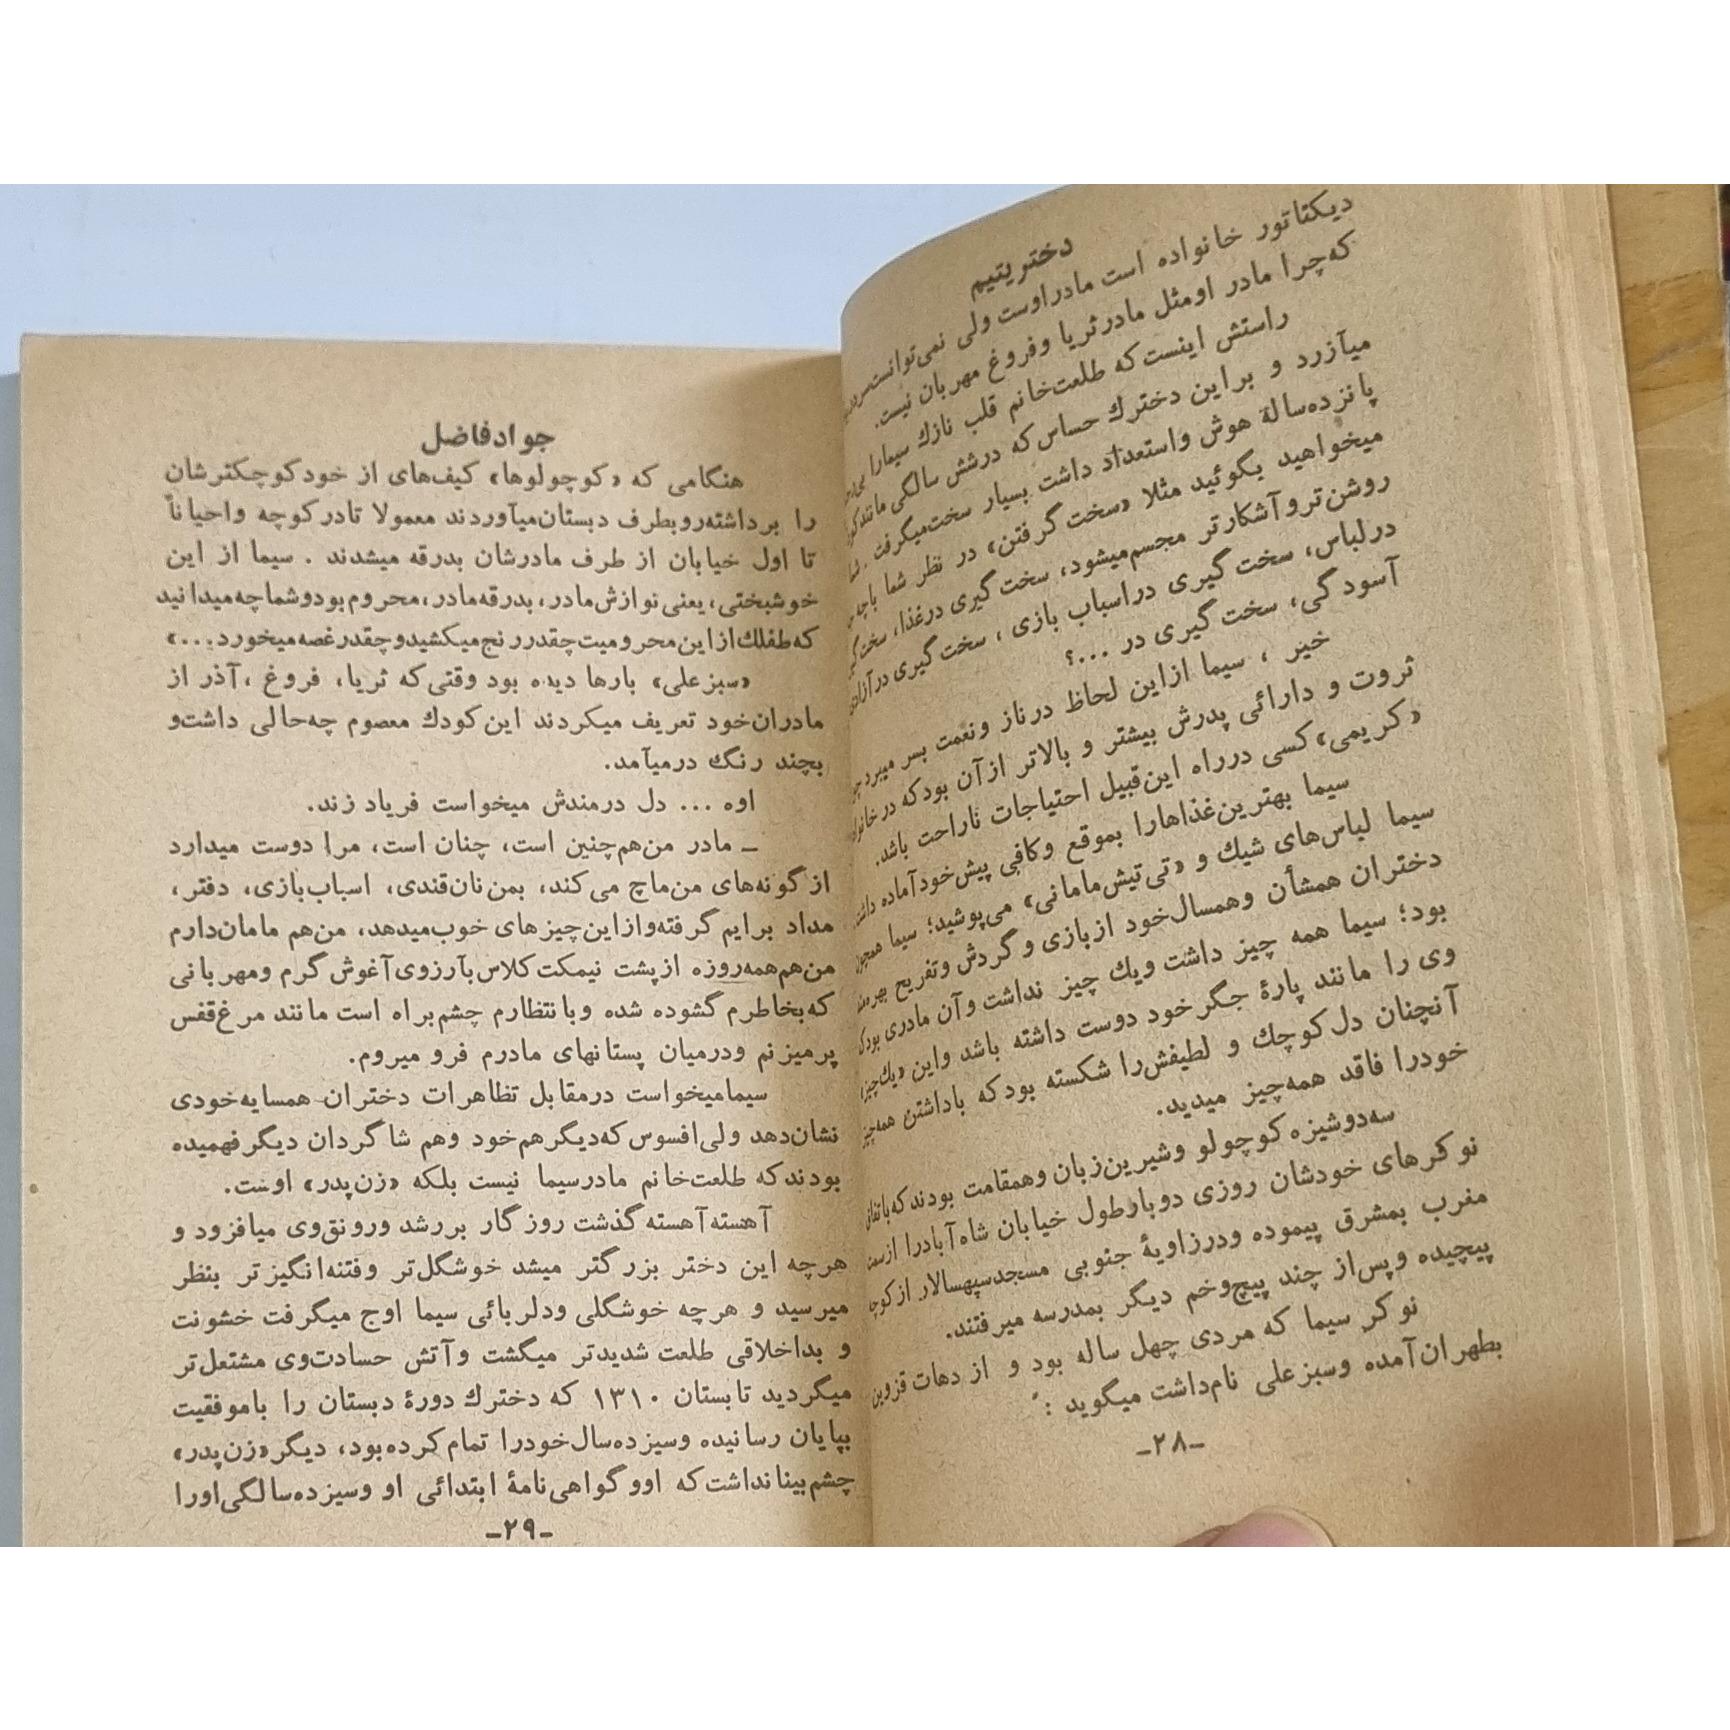 دختریتیم
دیکتاتور خانواده است مادراوست ولی نمی‌توانست
که‌چرا مادر اومثل مادرثریا وفروغ مهربان نیست.
راستش اینست‌که طلعت‌خانم قلب نازك سیمارا
میآزرد و براین دخترك حساس‌که درشش سالگی مانند
پانزده‌سالهٔ هوش واستعداد داشت بسیار سخت‌میگرفت .
میخواهید بگوئید مثلا «سخت گرفتن» در نظر شما باچه
روشن‌تروآشکارتر مجسم‌میشود، سخت‌گیری درغذا،
درلباس، سخت گیری دراسباب بازی ، سخت‌گیری درآزادی
آسودگی، سخت گیری در ...؟
خیر ، سیما ازاین لحاظ درناز ونعمت بسر میبرد
ثروت و دارائی پدرش بیشتر و بالاتر ازآن بودکه در
«کریمی» کسی درراه این‌قبیل احتیاجات ناراحت باشد.
سیما بهترین‌غذاهارا بموقع وکافی پیش‌خودآماده
سیما لباس‌های شیك و «تی‌تیش‌مامانی» می‌پوشید؛ سیما
دختران همشأن وهمسال‌خود ازبازی و گردش وتفریح
بود؛ سیما همه چیز داشت ویك چیز نداشت وآن مادری
وی را مانند پارهٔ جگرخود دوست داشته باشد واین «یك‌چیز»
آنچنان دل‌کوچك و لطیفش‌را شکسته بودکه باداشتن
خودرا فاقد همه‌چیز میدید.
سه‌دوشیزه‌کوچولو وشیرین‌زبان وهمقامت بودند
نوکرهای خودشان روزی دوبارطول خیابان شاه‌آبادرا
مغرب بمشرق پیموده ودرزاویهٔ جنوبی مسجدسپهسالار
پیچیده وپس‌از چند پیچ‌وخم دیگر بمدرسه میرفتند.
نوکر سیما که مردی چهل ساله بود و از دهات قزوین
بطهران‌آمده وسبزعلی نام‌داشت میگوید :
-۲۸-
جوادفاضل
هنگامی که «کوچولوها» کیف‌های از خودکوچکترشان
را برداشته‌روبطرف دبستان‌میآوردند معمولا تادرکوچه واحیاناً
تا اول خیابان از طرف مادرشان بدرقه میشدند . سیما از این
خوشبختی، یعنی نوازش‌مادر، بدرقه‌مادر، محروم‌بودوشماچه‌میدانید
که‌طفلك‌ازاین‌محرومیت‌چقدررنج‌میکشیدوچقدرغصه‌میخورد...»
«سبزعلی» بارها دیده بود وقتی‌که ثریا، فروغ ،آذر از
مادران‌خود تعریف میکردند این‌کودك معصوم چه‌حالی داشت‌و
بچند رنگ درمیآمد.
اوه ... دل درمندش میخواست فریاد زند.
ـ مادر من‌هم‌چنین است، چنان است، مرا دوست میدارد
ازگونه‌های من‌ماچ می‌کند، بمن‌نان‌قندی، اسباب‌بازی، دفتر،
مداد برایم گرفته‌وازاین‌چیزهای خوب‌میدهد، من‌هم مامان‌دارم
من‌هم‌همه‌روزه ازپشت نیمکت‌کلاس‌بآرزوی‌آغوش گرم ومهربانی
که‌بخاطرم گشوده شده وبانتظارم چشم‌براه است مانند مرغ‌قفس
پرمیزنم ودرمیان پستانهای مادرم فرو میروم.
سیمامیخواست درمقابل تظاهرات دختران همسایه‌خودی
نشان‌دهد ولی‌افسوس‌که‌دیگرهم‌خود وهم شاگردان دیگرفهمیده
بودندکه طلعت‌خانم مادرسیما نیست بلکه «زن‌پدر» اوست.
آهسته‌آهسته‌گذشت روزگار بررشد ورونق‌وی میافزود و
هرچه این دختر بزرگتر میشد خوشگل‌تر وفتنه‌انگیزتر بنظر
میرسید و هرچه خوشگلی ودلربائی سیما اوج میگرفت خشونت
و بداخلاقی طلعت شدیدتر میگشت وآتش حسادت‌وی مشتعل‌تر
میگردید تابستان ۱۳۱۰ که دخترك دورهٔ دبستان را باموفقیت
بپایان رسانیده وسیزده‌سال‌خودرا تمام‌کرده‌بود، دیگر«زن‌پدر»
چشم‌بینانداشت‌که اووگواهی‌نامهٔ ابتدائی او وسیزده‌سالگی‌اورا
-۲۹-